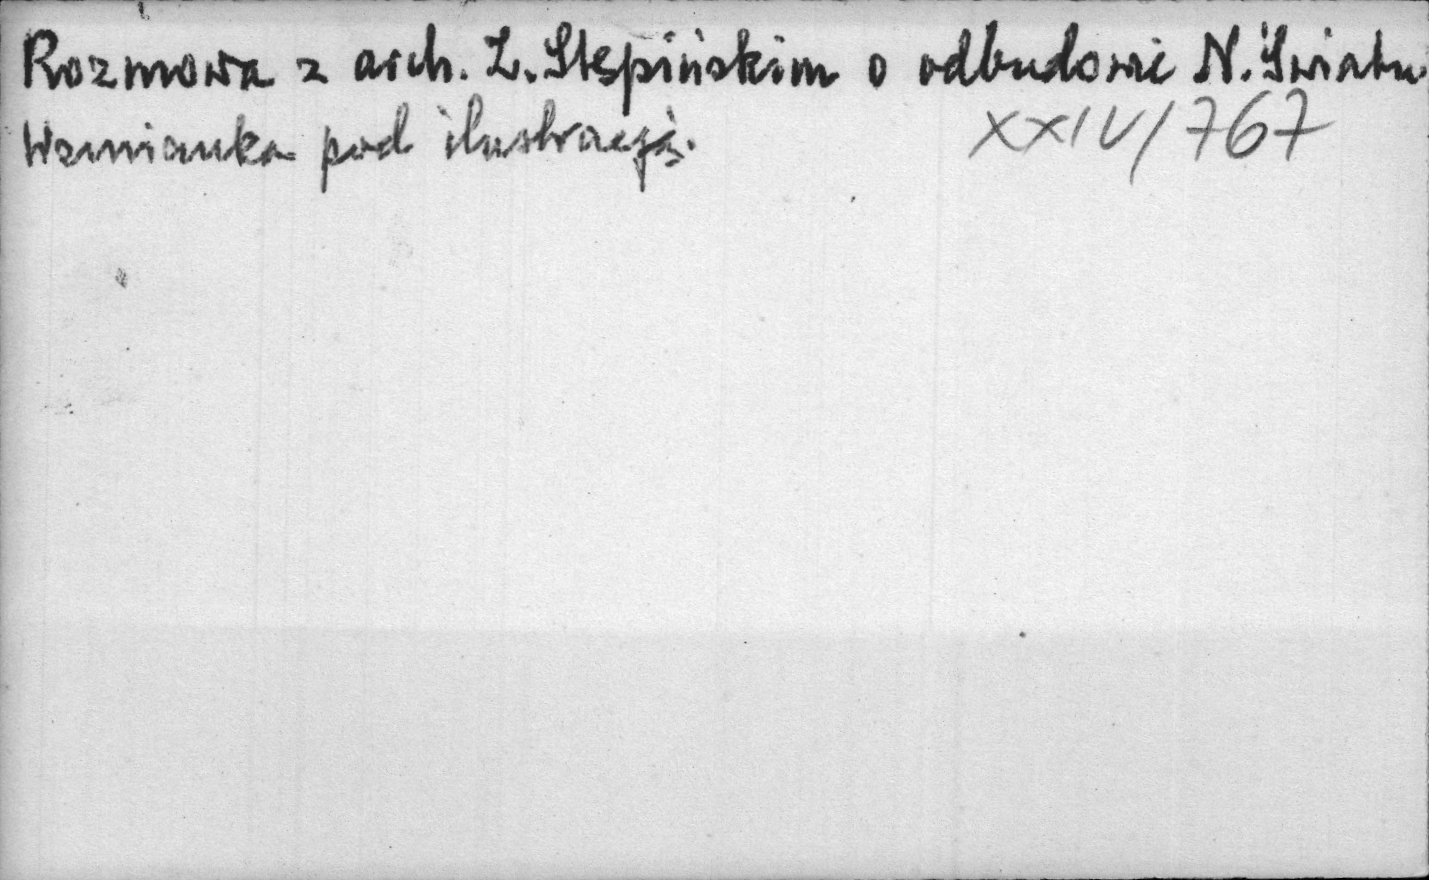 Rozmowa z arch. Z. Stępińskim o odbudowie N. Światu
Wzmianka pod ilustracją. XXIV/767